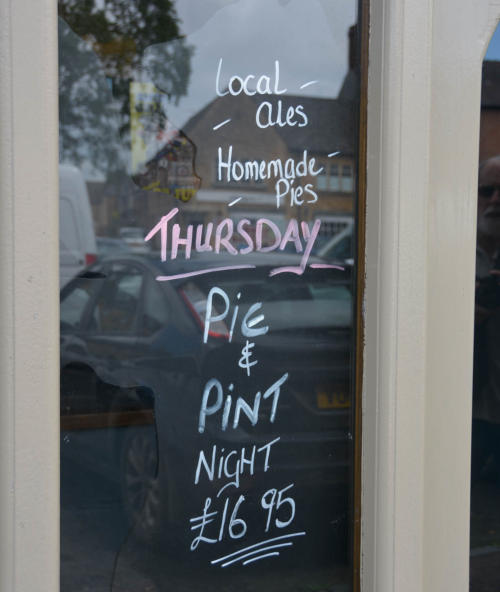 Local -
- Ales
Homemade -
- Pies
THURSDAY
PiE
&
PiNT
NiGHT
£16 95